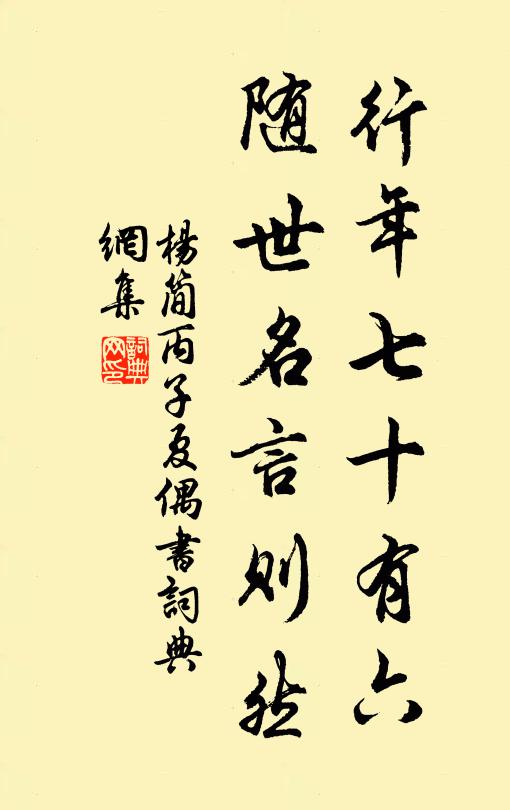 行年七十有六
随世名言則然
楊简丙子夏偶書詞典
網集
詞典
网印